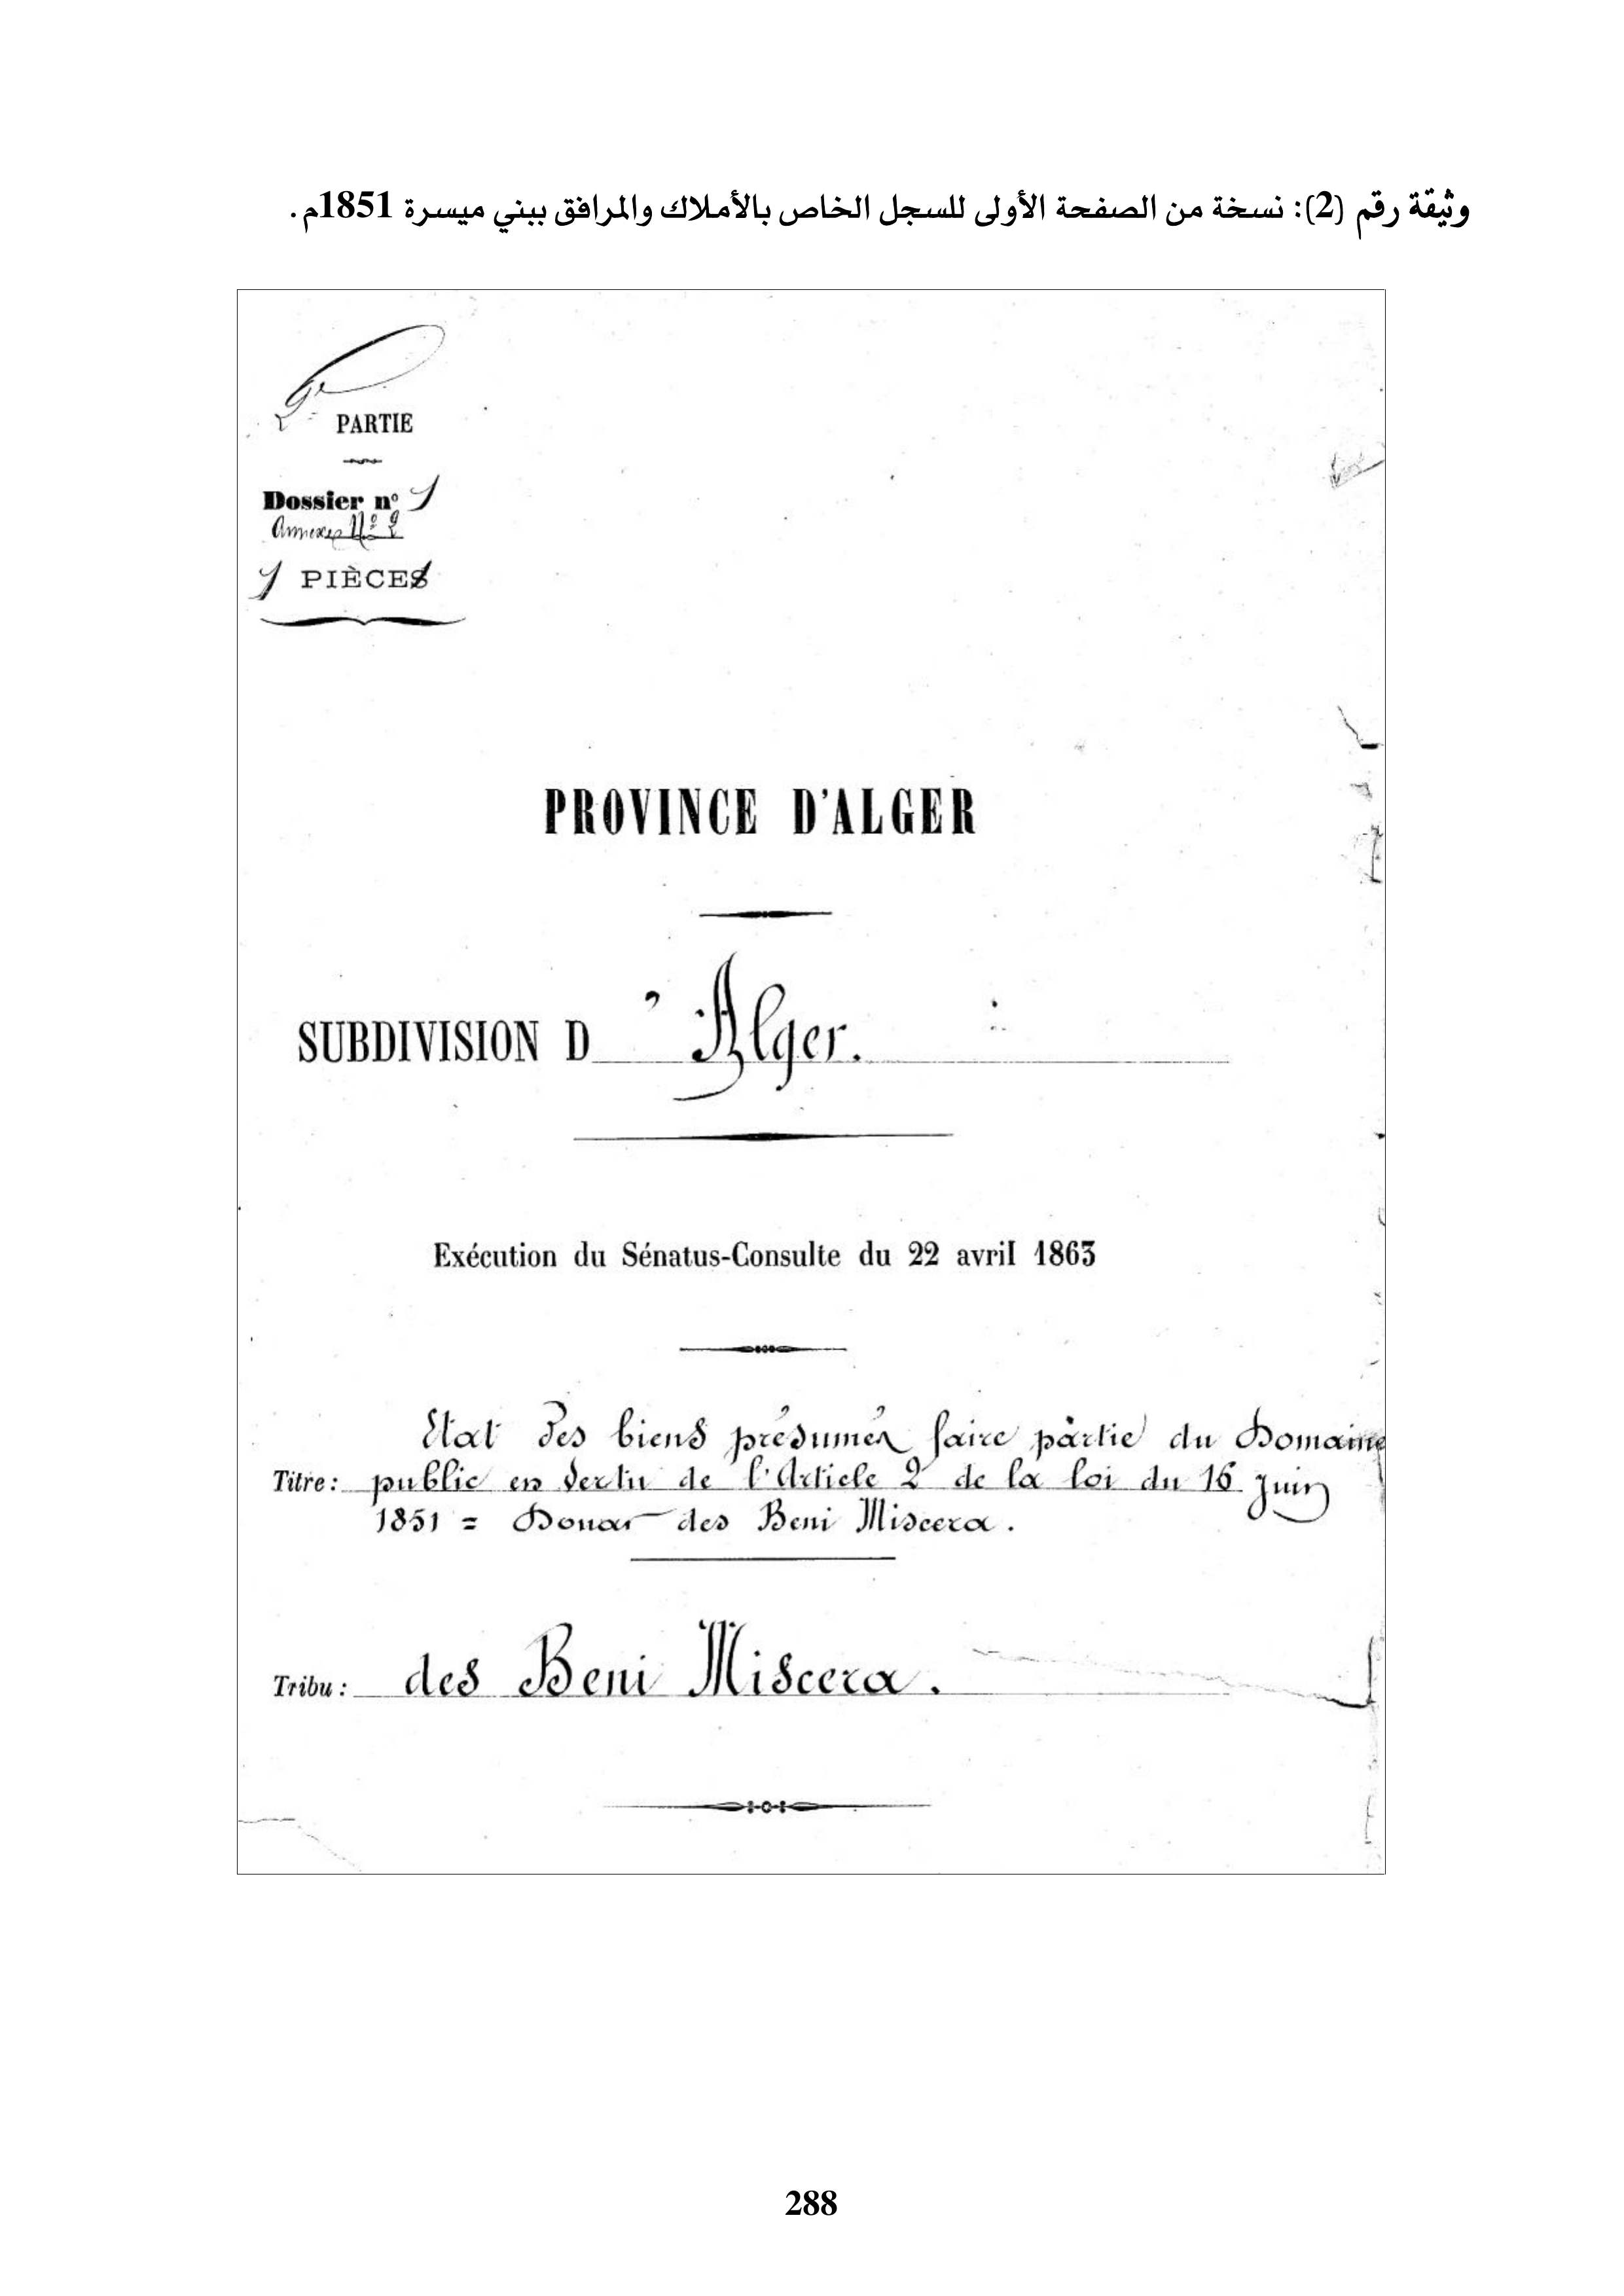 وثيقة رقم (2): نسخة من الصفحة الأولى للسجل الخاص بالأملاك والمرافق ببني ميسرة 1851م.
2e PARTIE
Dossier nº 1
Annexes Nº 2
1 PIÈCES
PROVINCE D'ALGER
SUBDIVISION D'Alger.
Exécution du Sénatus-Consulte du 22 avril 1863
Etat des biens présumés faire partie du Domaine
Titre: public en vertu de l'Article 2 de la loi du 16 Juin
1851 = Douar des Beni Miscera.
Tribu: des Beni Miscera.
288